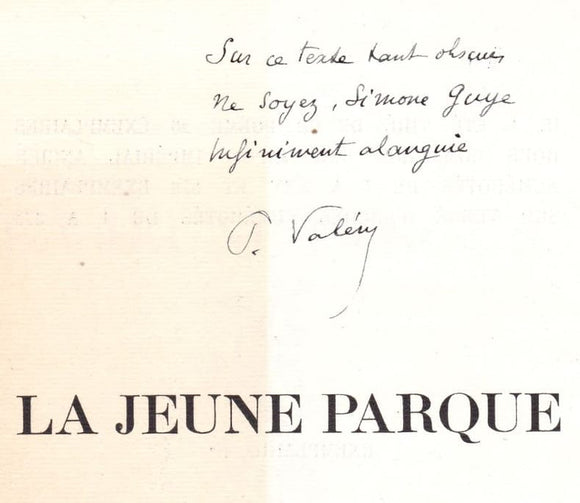 Sur ce texte tant obscur
Ne soyez, Simone Guye
Infiniment alanguie
P. Valéry
LA JEUNE PARQUE